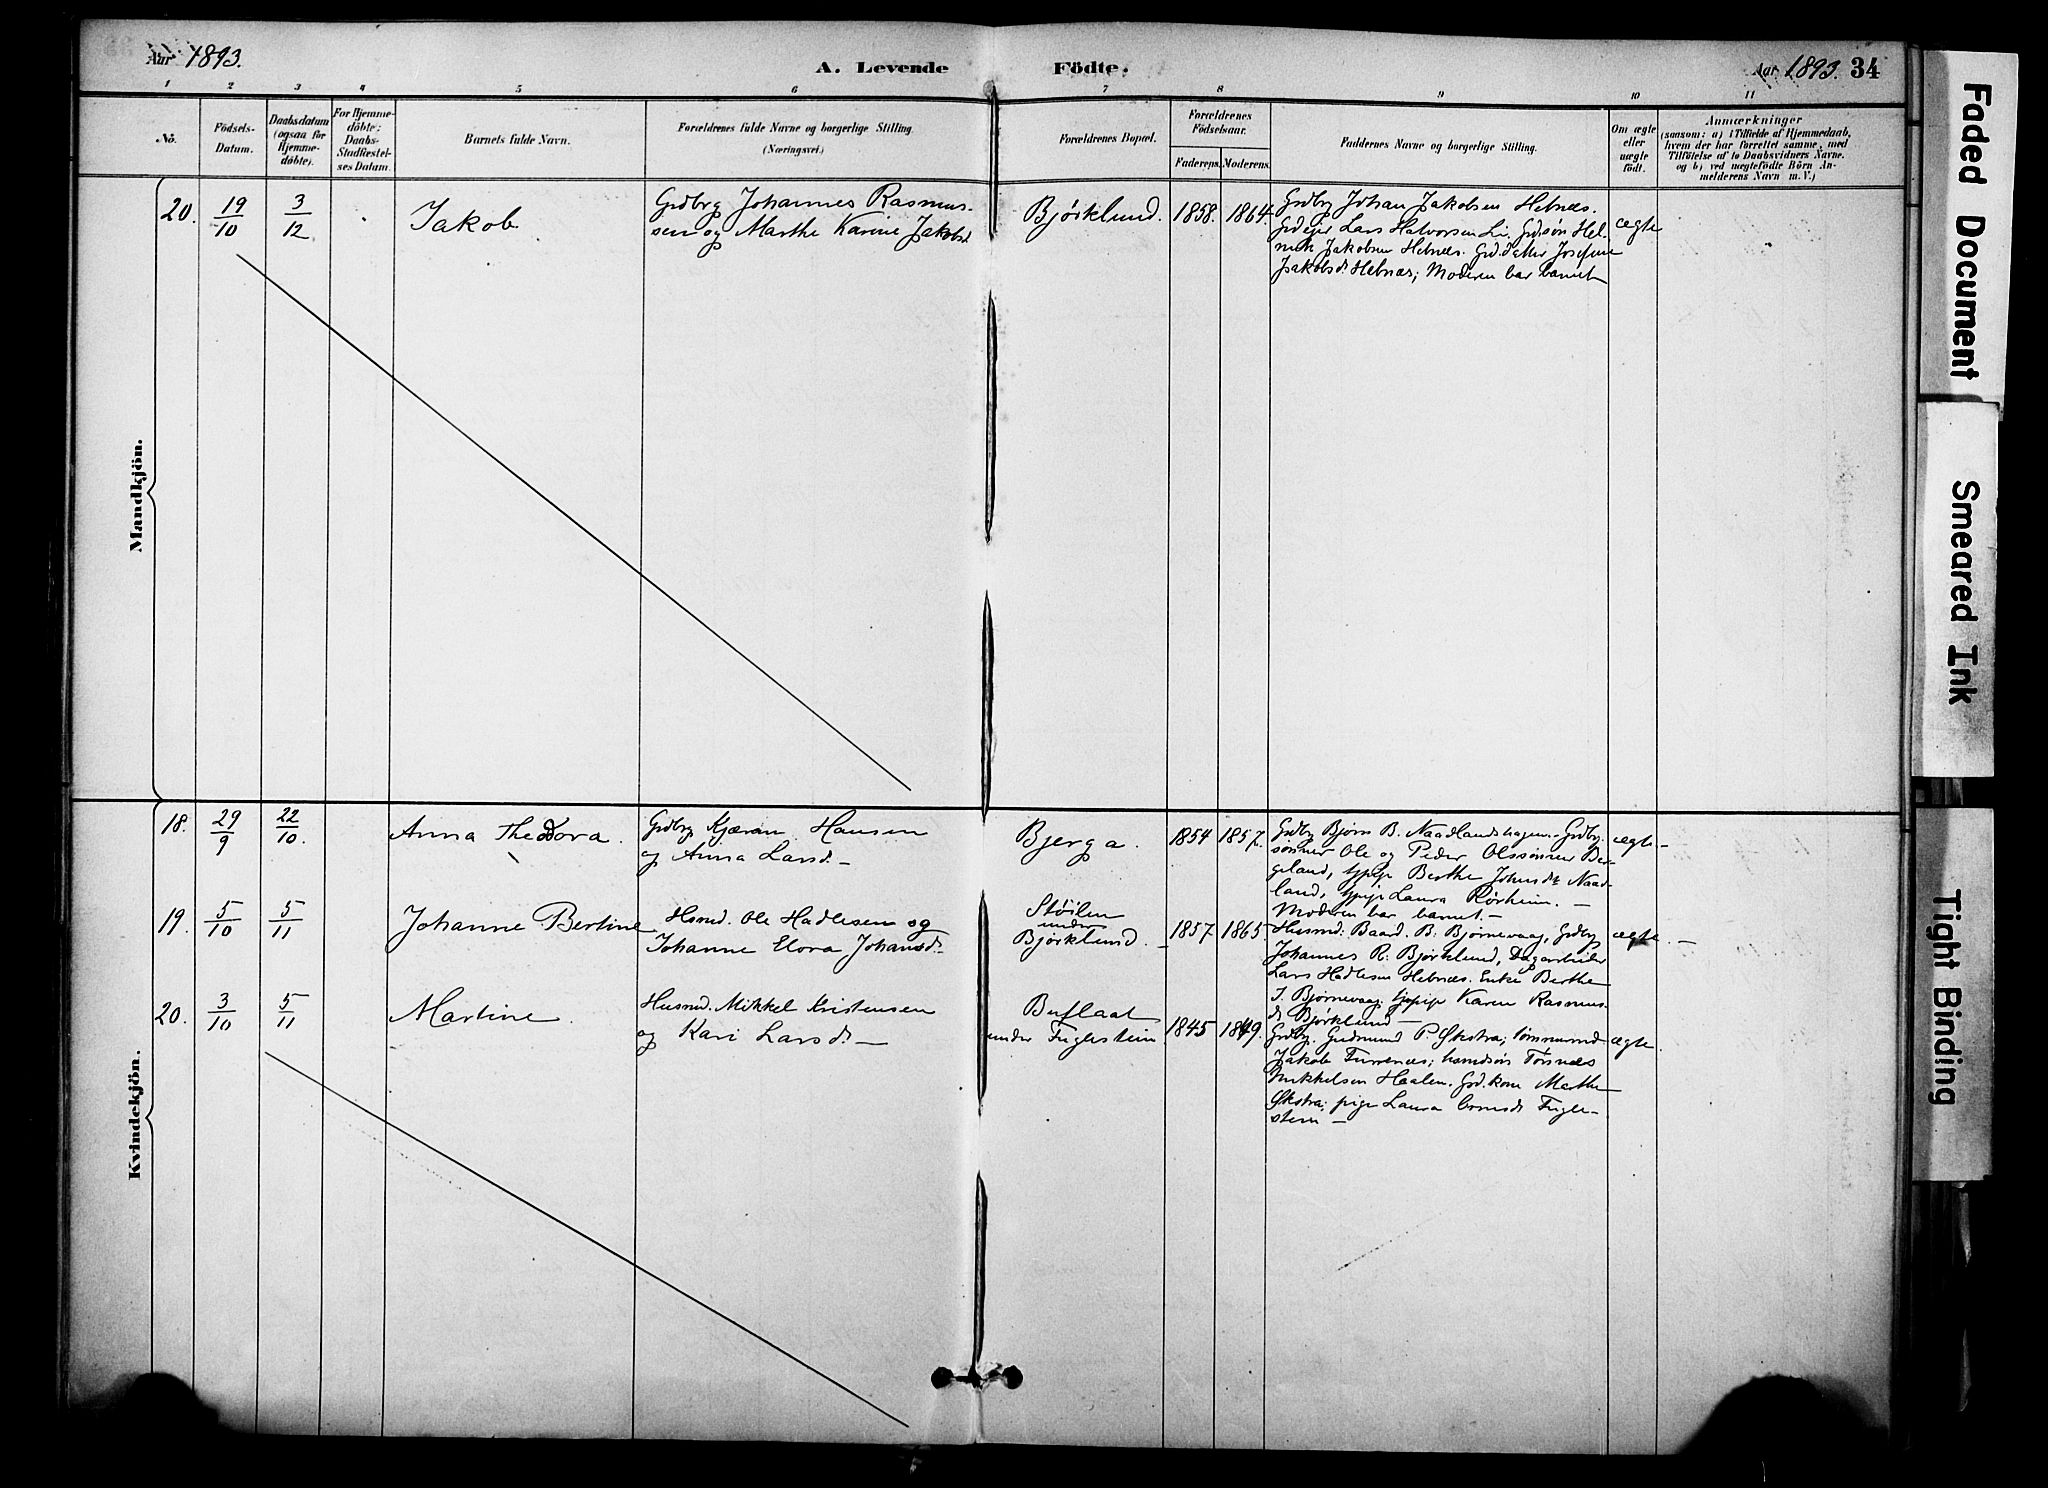 Aar 1893.
A. Levende Födte.
Aar 1893. 34
1 2 3 4 5 6 7 8 9 10 11
No.
Födsels-
Datum.
Daabsdatum
(ogsaa for
Hjemme-
döbte).
For Hjemme-
döbte:
Daabs-
Stadfæstel-
ses Datum.
Barnets fulde Navn.
Forældrenes fulde Navne og borgerlige Stilling.
(Næringsvei.)
Forældrenes Bopæl.
Forældrenes
Födselsaar.
Faderens. Moderens.
Faddernes Navne og borgerlige Stilling.
Om ægte
eller
uægte
födt.
Anmærkninger
(saasom: a) i Tilfælde af Hjemmedaab,
hvem der har forrettet samme, med
Tilföielse af to Daabsvidners Navne.
og b) ved uægtefödte Börn An-
melderens Navn m. V.)
Mandkjön.
20. 19/10 3/12 Jakob
Grdbrg Johannes Rasmus-
sen og Marthe Karine Jakobsd
Bjørklund. 1858. 1864.
Grdbrg Johan Jakobsen Hebnæs.
Grdejer Lars Halvorsen Li. Grdsøn Hel-
mik Jakobsen Hebnæs. Grd.datter Josefine
Jakobsd. Hebnæs; Moderen bar barnet
ægte
Kvindekjön.
18. 29/9 22/10. Anna Theodora.
Grdbrg Kjæran Hansen
og Anna Larsd. —
Bjerga. 1854 1857.
Grdbg Bjørn B. Naadlandshagen. Grdbg.
sønner Ole og Peder Olssønner Ber-
geland, tjpige Berthe Johnsdt. Naad-
land, tjpige Laura Rørheim. —
Moderen bar barnet. —
ægte —
19. 5/10 5/11 Johanne Bertine
Husmd. Ole Hadlesen og
Johanne Elora Johansd.
Støilen
under
Bjørklund. — 1857 1865.
Husmd: Baard. B. Bjørnevaag, Grdbg
Johannes R. Bjørklund, Dagarbeider
Lars Hadlesen Hebnæs. Enke Berthe
I. Bjørnevaag; tjpige Karen Rasmus-
d. Bjørklund —
ægte. —
20. 3/10 5/11 Martine.
Husmd. Mikkel Kristensen
og Kari Larsd. —
Buflaat
under Fuglestein 1845 1849.
Grdbg. Gudmund P. Økstra; tømmermd
Jakob Furrenæs; husmdsøn Tørnæs
Mikkelsen Haalen. Grd.kone Marthe
Økstra; pige Laura Ormsd. Fugle-
stein —
ægte.
Faded Document
Smeared Ink
Tight Binding